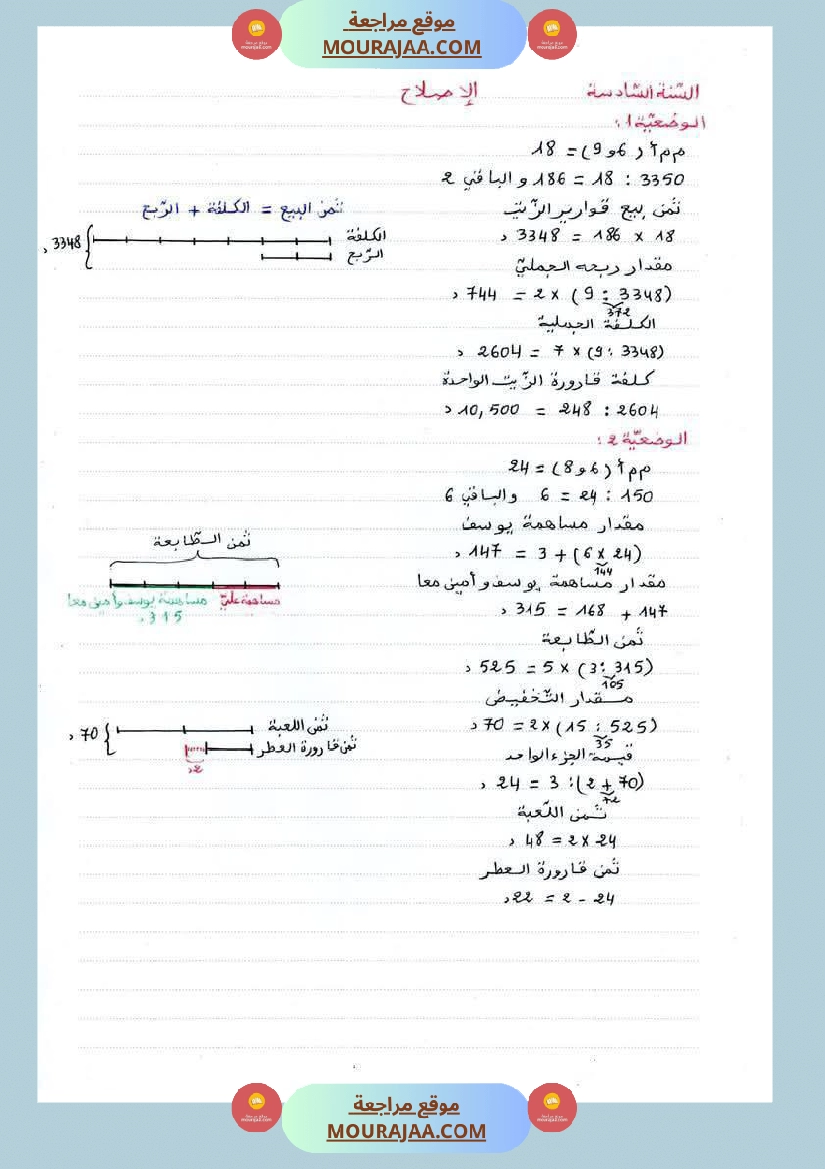 موقع مراجعة
MOURAJAA.COM
السّنة السّادسة الإصلاح
الوضعيّة 1 :
م م أ (6 و 9) = 18
3350 : 18 = 186 و الباقي 2
ثمن بيع قوارير الزّيت
18 × 186 = 3348 د
ثمن البيع = الكلفة + الرّبح
الكلفة
الرّبح
3348 د
مقدار ربحه الجمليّ
(3348 : 9) × 2 = 744 د
372
الكلفة الجملية
(3348 : 9) × 7 = 2604 د
كلفة قارورة الزّيت الواحدة
2604 : 248 = 10,500 د
الوضعيّة 2 :
م م أ (6 و 8) = 24
150 : 24 = 6 والباقي 6
مقدار مساهمة يوسف
(24 × 6) + 3 = 147 د
144
مقدار مساهمة يوسف وأمين معا
147 + 168 = 315 د
ثمن الطّابعة
مساهمة عليّ
مساهمة يوسف وأمين معا
315 د
ثمن الطّابعة
(315 : 3) × 5 = 525 د
105
مقدار التّخفيض
(525 : 15) × 2 = 70 د
35
ثمن اللعبة
ثمن قارورة العطر
70 د
2د
قيمة الجزء الواحد
(70 + 2) : 3 = 24 د
72
ثمن اللّعبة
24 × 2 = 48 د
ثمن قارورة العطر
24 - 2 = 22 د
موقع مراجعة
MOURAJAA.COM